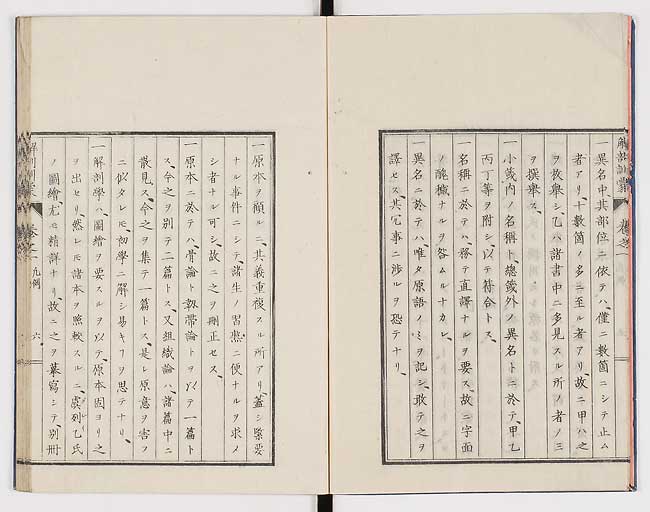 一異名中、其部位ニ依テハ、僅ニ數箇ニシテ止ム
者アリ、十數箇ノ多ニ至ル者アリ、故ニ甲ハ之
ヲ枚擧シ、乙ハ諸書中ニ多見スル所ノ者ノ三
ヲ撰擧ス、
一小裁内ノ名稱ト、總裁外ノ異名トニ於テ、甲乙
丙丁等ヲ附シ、以テ符合トス、
一名稱ニ於テハ、務テ直譯ナルヲ要ス、故ニ字面
ノ醜穢ナルヲ咎ムルナカレ、
一異名ニ於テハ、唯タ原語ノミヲ記シ、敢テ之ヲ
譯セス、其冗事ニ涉ルヲ恐テナリ、
一原本ヲ顧ルニ、其義重複スル所アリ、蓋シ緊要
ナル事件ニシテ、諸生ノ習熟ニ便ナルヲ求メ
シ者ナル可シ、故ニ之ヲ刪正セス、
一原本ニ於テハ、骨論ト靱帶論トヲ以テ一篇ト
ス、今之ヲ別テ二篇トス、又組織論ハ、諸篇中ニ
散見ス、今之ヲ集テ一篇トス、是レ原意ヲ害フ
ニ似タレモ、初學ニ解シ易キヿヲ思テナリ、
一解剖學ハ、圖繪ヲ要スルヲ以テ、原本固ヨリ之
ヲ出セリ、然レモ諸本ヲ照較スルニ、虞列乙氏
ノ圖繪、尤モ精詳ナリ、故ニ之ヲ摹寫シテ、別冊
解剖訓蒙 卷之一 凡例 六